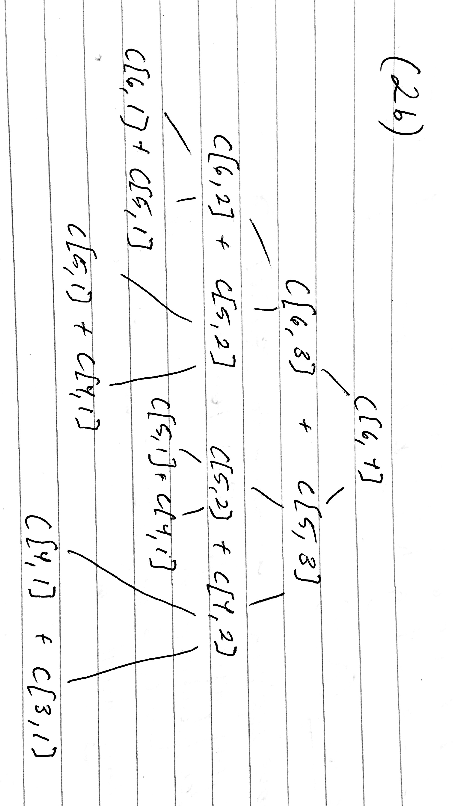 (2b)
C[6,4]
C[6,3] + C[5,3]
C[6,2] + C[5,2] C[5,2] + C[4,2]
C[6,1] + C[5,1] C[5,1] + C[4,1]
C[5,1] + C[4,1]
C[4,1] + C[3,1]